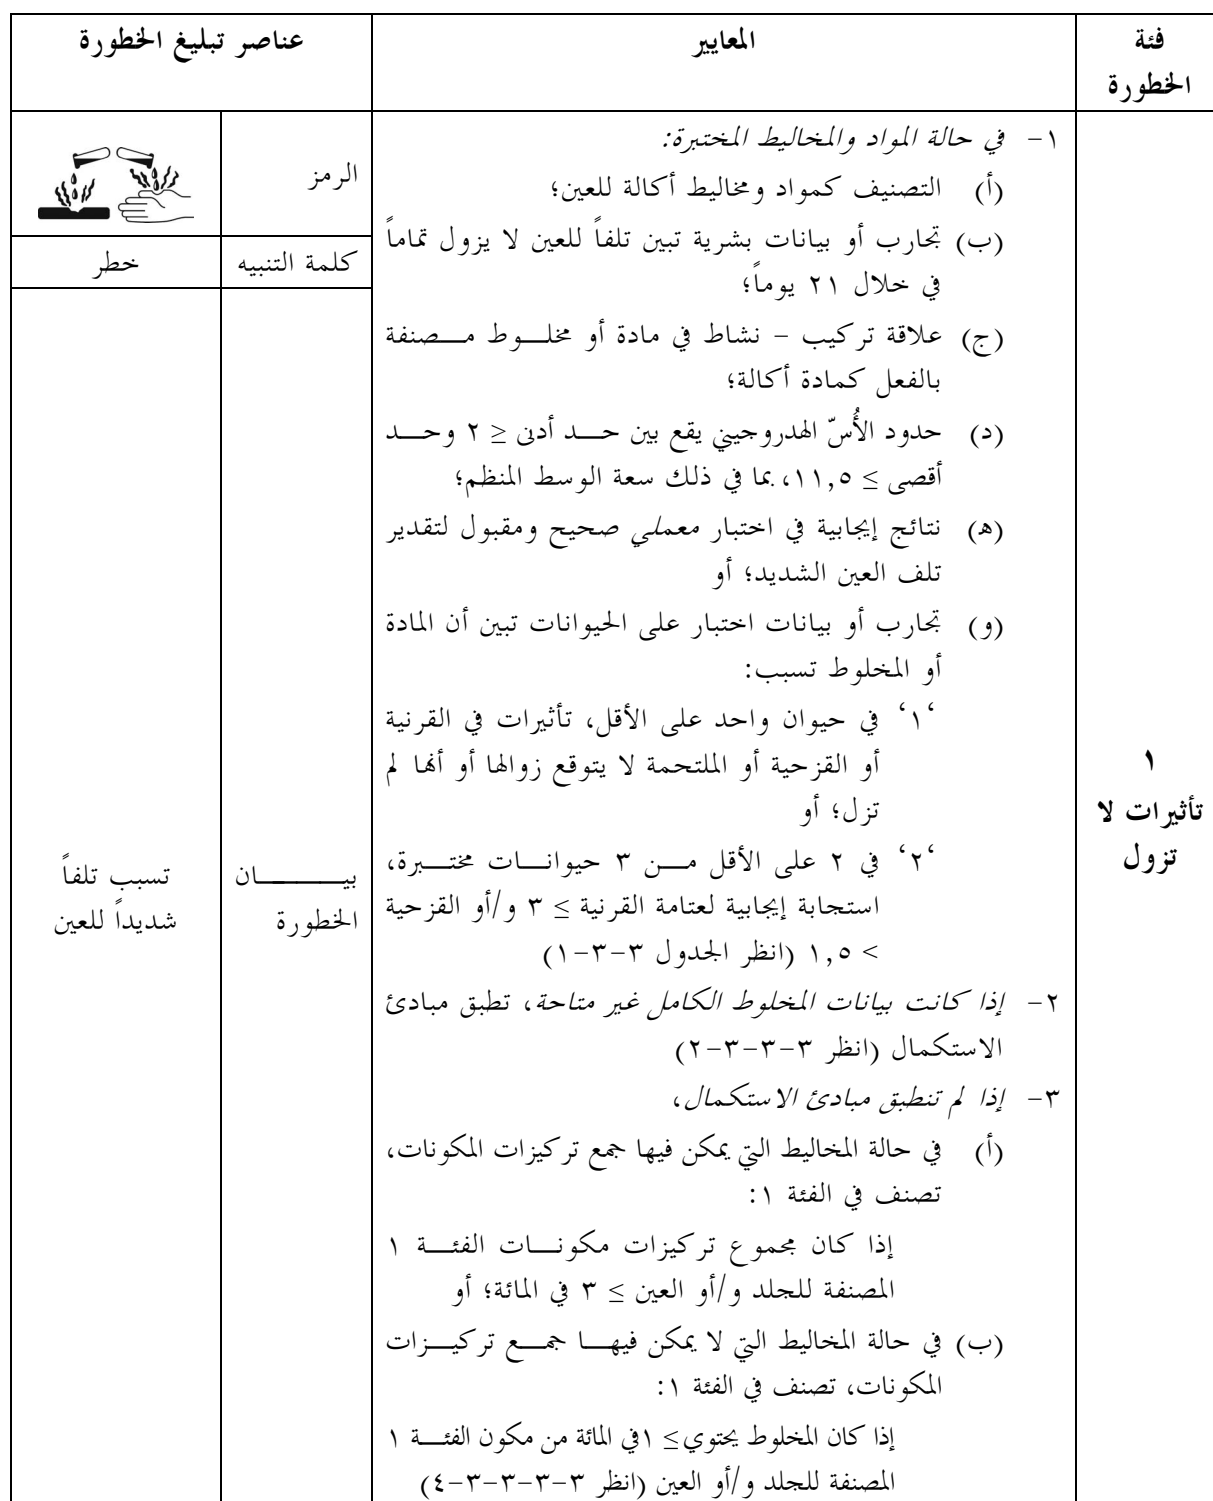 فئة
الخطورة
المعايير
عناصر تبليغ الخطورة
١
تأثيرات لا
تزول
١- في حالة المواد والمخاليط المختبرة:
(أ) التصنيف كمواد ومخاليط أكالة للعين؛
(ب) تجارب أو بيانات بشرية تبين تلفاً للعين لا يزول تماماً
في خلال ٢١ يوماً؛
(ج) علاقة تركيب - نشاط في مادة أو مخلوط مصنفة
بالفعل كمادة أكالة؛
(د) حدود الأُسّ الهدروجيني يقع بين حد أدنى ≤ ٢ وحد
أقصى ≥ ١١,٥، بما في ذلك سعة الوسط المنظم؛
(ه) نتائج إيجابية في اختبار معملي صحيح ومقبول لتقدير
تلف العين الشديد؛ أو
(و) تجارب أو بيانات اختبار على الحيوانات تبين أن المادة
أو المخلوط تسبب:
‘١‘ في حيوان واحد على الأقل، تأثيرات في القرنية
أو القزحية أو الملتحمة لا يتوقع زوالها أو أنها لم
تزل؛ أو
‘٢‘ في ٢ على الأقل من ٣ حيوانات مختبرة،
استجابة إيجابية لعتامة القرنية ≥ ٣ و/أو القزحية
> ١,٥ (انظر الجدول ٣-٣-١)
٢- إذا كانت بيانات المخلوط الكامل غير متاحة، تطبق مبادئ
الاستكمال (انظر ٣-٣-٣-٢)
٣- إذا لم تنطبق مبادئ الاستكمال،
(أ) في حالة المخاليط التي يمكن فيها جمع تركيزات المكونات،
تصنف في الفئة ١:
إذا كان مجموع تركيزات مكونات الفئة ١
المصنفة للجلد و/أو العين ≥ ٣ في المائة؛ أو
(ب) في حالة المخاليط التي لا يمكن فيها جمع تركيزات
المكونات، تصنف في الفئة ١:
إذا كان المخلوط يحتوي ≥ ١في المائة من مكون الفئة ١
المصنفة للجلد و/أو العين (انظر ٣-٣-٣-٣-٤)
الرمز
كلمة التنبيه
خطر
بيان
الخطورة
تسبب تلفاً
شديداً للعين